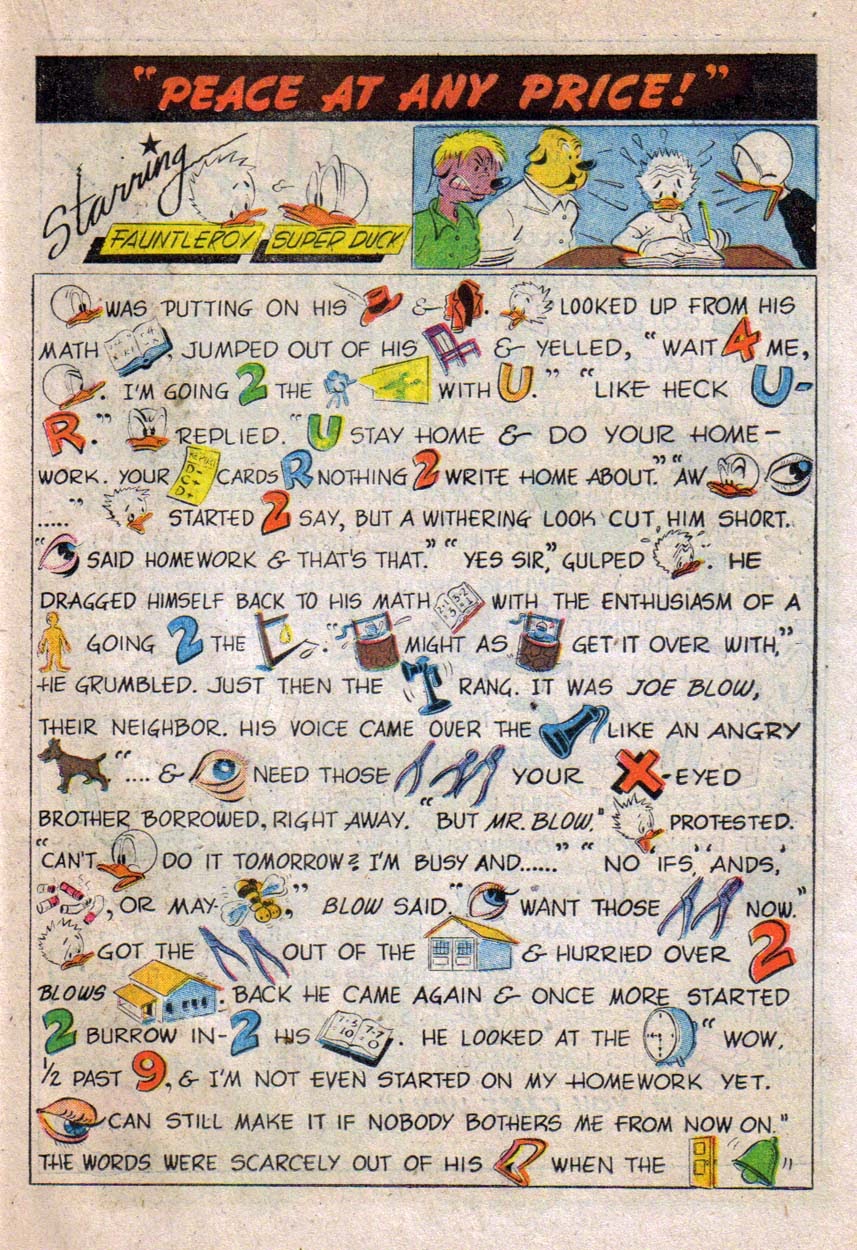 "PEACE AT ANY PRICE!"
Starring
FAUNTLEROY & SUPER DUCK
WAS PUTTING ON HIS & . LOOKED UP FROM HIS
MATH , JUMPED OUT OF HIS & YELLED, "WAIT 4 ME,
. I'M GOING 2 THE WITH U." "LIKE HECK U-
R." REPLIED. "U STAY HOME & DO YOUR HOME-
WORK. YOUR CARDS R NOTHING 2 WRITE HOME ABOUT." "AW
....." STARTED 2 SAY, BUT A WITHERING LOOK CUT HIM SHORT.
" SAID HOMEWORK & THAT'S THAT." "YES SIR," GULPED . HE
DRAGGED HIMSELF BACK TO HIS MATH WITH THE ENTHUSIASM OF A
GOING 2 THE . " MIGHT AS GET IT OVER WITH,"
HE GRUMBLED. JUST THEN THE RANG. IT WAS JOE BLOW,
THEIR NEIGHBOR. HIS VOICE CAME OVER THE LIKE AN ANGRY
".... & NEED THOSE YOUR X-EYED
BROTHER BORROWED, RIGHT AWAY. "BUT MR. BLOW," PROTESTED.
"CAN'T DO IT TOMORROW? I'M BUSY AND......" "NO 'IFS,' 'ANDS,'
, OR MAY- ," BLOW SAID. " WANT THOSE NOW."
GOT THE OUT OF THE & HURRIED OVER 2
BLOWS . BACK HE CAME AGAIN & ONCE MORE STARTED
2 BURROW IN-2 HIS . HE LOOKED AT THE "WOW,
1/2 PAST 9, & I'M NOT EVEN STARTED ON MY HOMEWORK YET.
CAN STILL MAKE IT IF NOBODY BOTHERS ME FROM NOW ON."
THE WORDS WERE SCARCELY OUT OF HIS WHEN THE